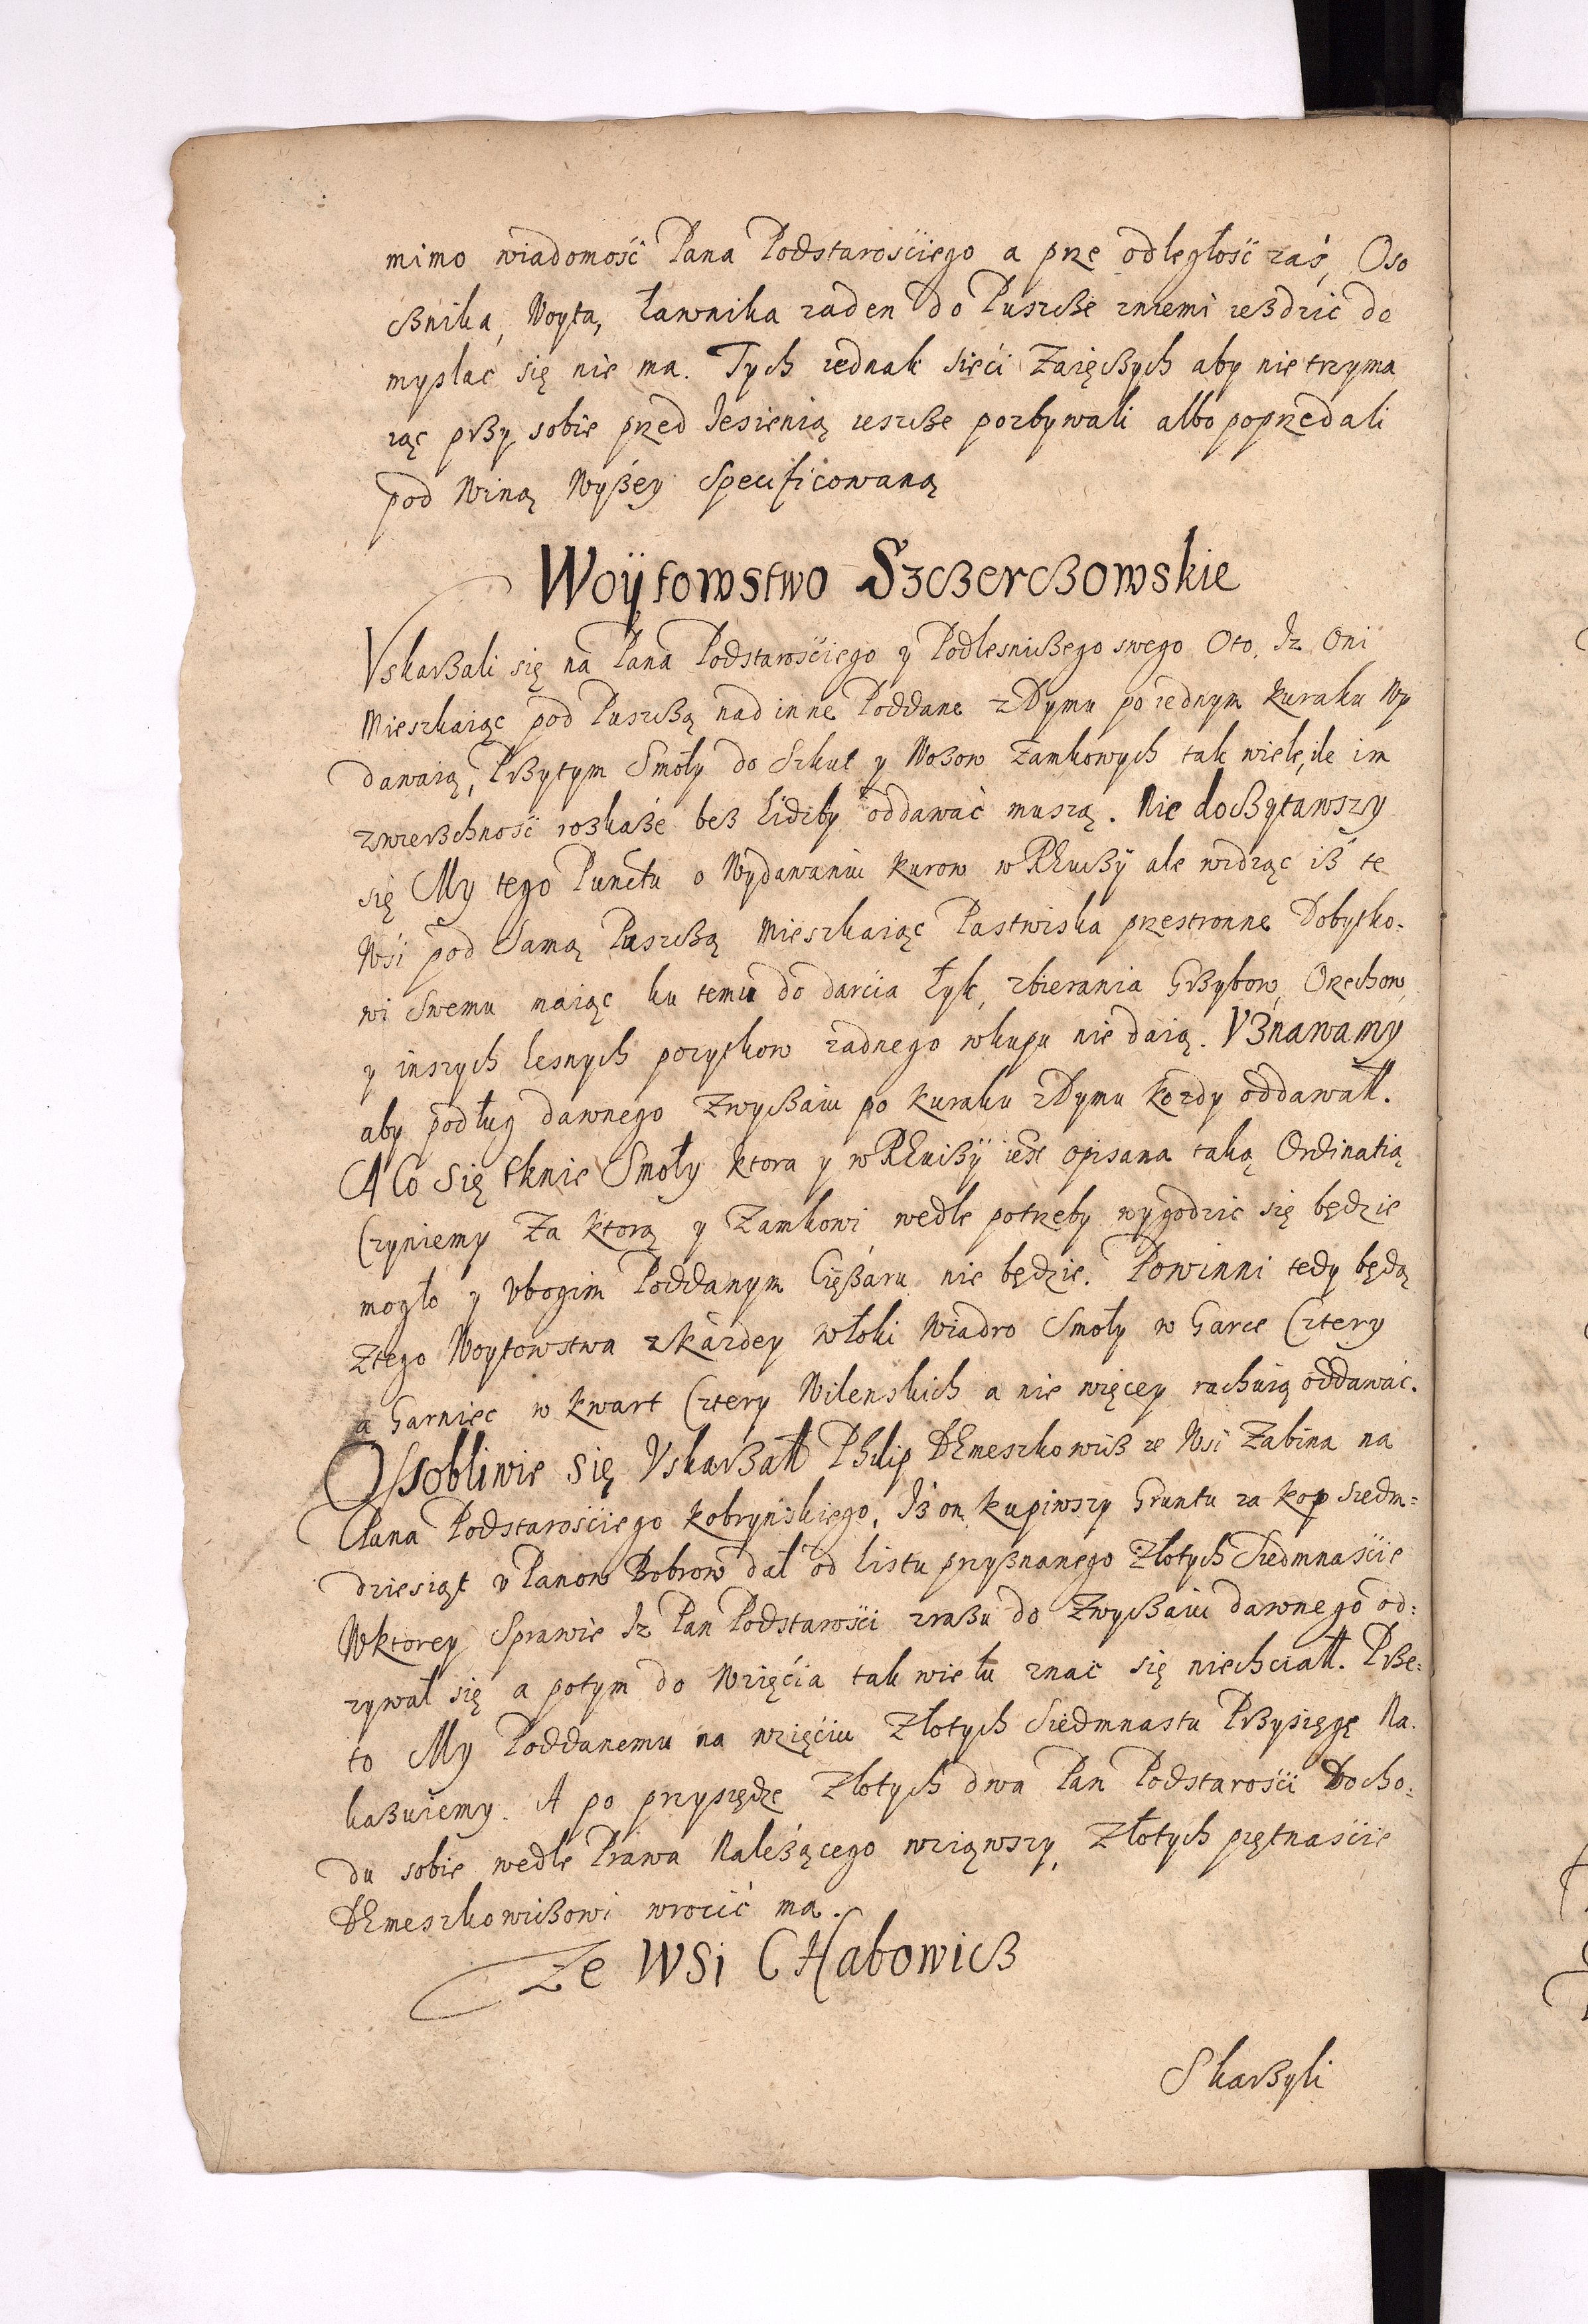 mimo wiadomość Pana Podstarościego a prze odległość zaś, Oso
cznika, Woyta, ławnika zaden do Puszcze zniemi iezdzić do
myslać się nie ma. Tych iednak sieci Zaięczych aby nie trzyma
iąc przy sobie przed Iesienią ieszcze pozbywali albo poprzedali
pod Winą Wyżey Specificowaną
Woÿtowstwo Szczerczowskie
Vskarżali się na Pana Podstarościego y Podlesniczego swego Oto, Iz Oni
Mieszkaiąc pod Puszczą nad inne Poddane z Dymu po iednym Kuraku Wy
dawaią, Przytym Smoły do Szkut y Wozow Zamkowych tak wiele, ile im
zwierzchność rozkaże bez Liczby oddawać muszą. Nie doczytawszy
się My tego Punctu o Wydawaniu Kurow w REwizÿ ale widząc iż te
Wsi pod Samą Puszczą Mieszkaiąc Pastwiska przestronne Dobytko-
wi Swemu maiąc ku temu do darcia Łyk, zbierania Grzybow, Orzechow,
y inszych lesnych pozytkow zadnego wkupu nie daią. VZnawamy
aby podług dawnego Zwyczaiu po Kuraku z Dymu Kozdy oddawał.
A Co Się tknie Smoły Ktora y w REwizÿ iest opisana taką Ordinatią
Czyniemy Za Ktorą y Zamkowi wedle potrzeby wygodzić się będzie
mogło y vbogim Poddanym Ciężaru nie będzie. Powinni tedy będą
Ztego Woytowstwa z Kazdey Włoki Wiadro Smoły w Garce Cztery
a Garniec w Kwart Cztery Wilenskich a nie więcey rachuią oddawać.
Ossobliwie Się Vskarżał Philip DEmeszkowicz ze Wsi Zabina na
Pana Podstarościego Kobryńskiego, Iż on Kupiwszy Gruntu za Kop Siedm-
dziesiąt v Panow Bobrow dał od listu przyznanego Złotych Siedmnaście
W Ktorey Sprawie Iz Pan Podstarości zrazu do Zwyczaiu dawnego od-
zywał się a potym do Wzięcia tak wielu znać się niechciał. Prze-
to My Poddanemu na wzięciu Złotych Siedmnastu Przysięgę Na-
kazuiemy. A po przysiędze Złotych dwa Pan Podstarości Docho-
du sobie wedle Prawa Należącego wziąwszy, Złotych piętnaście
DEmeszkowiczowi wrocić ma.
Ze WSi CHabowicz
Skarżyli